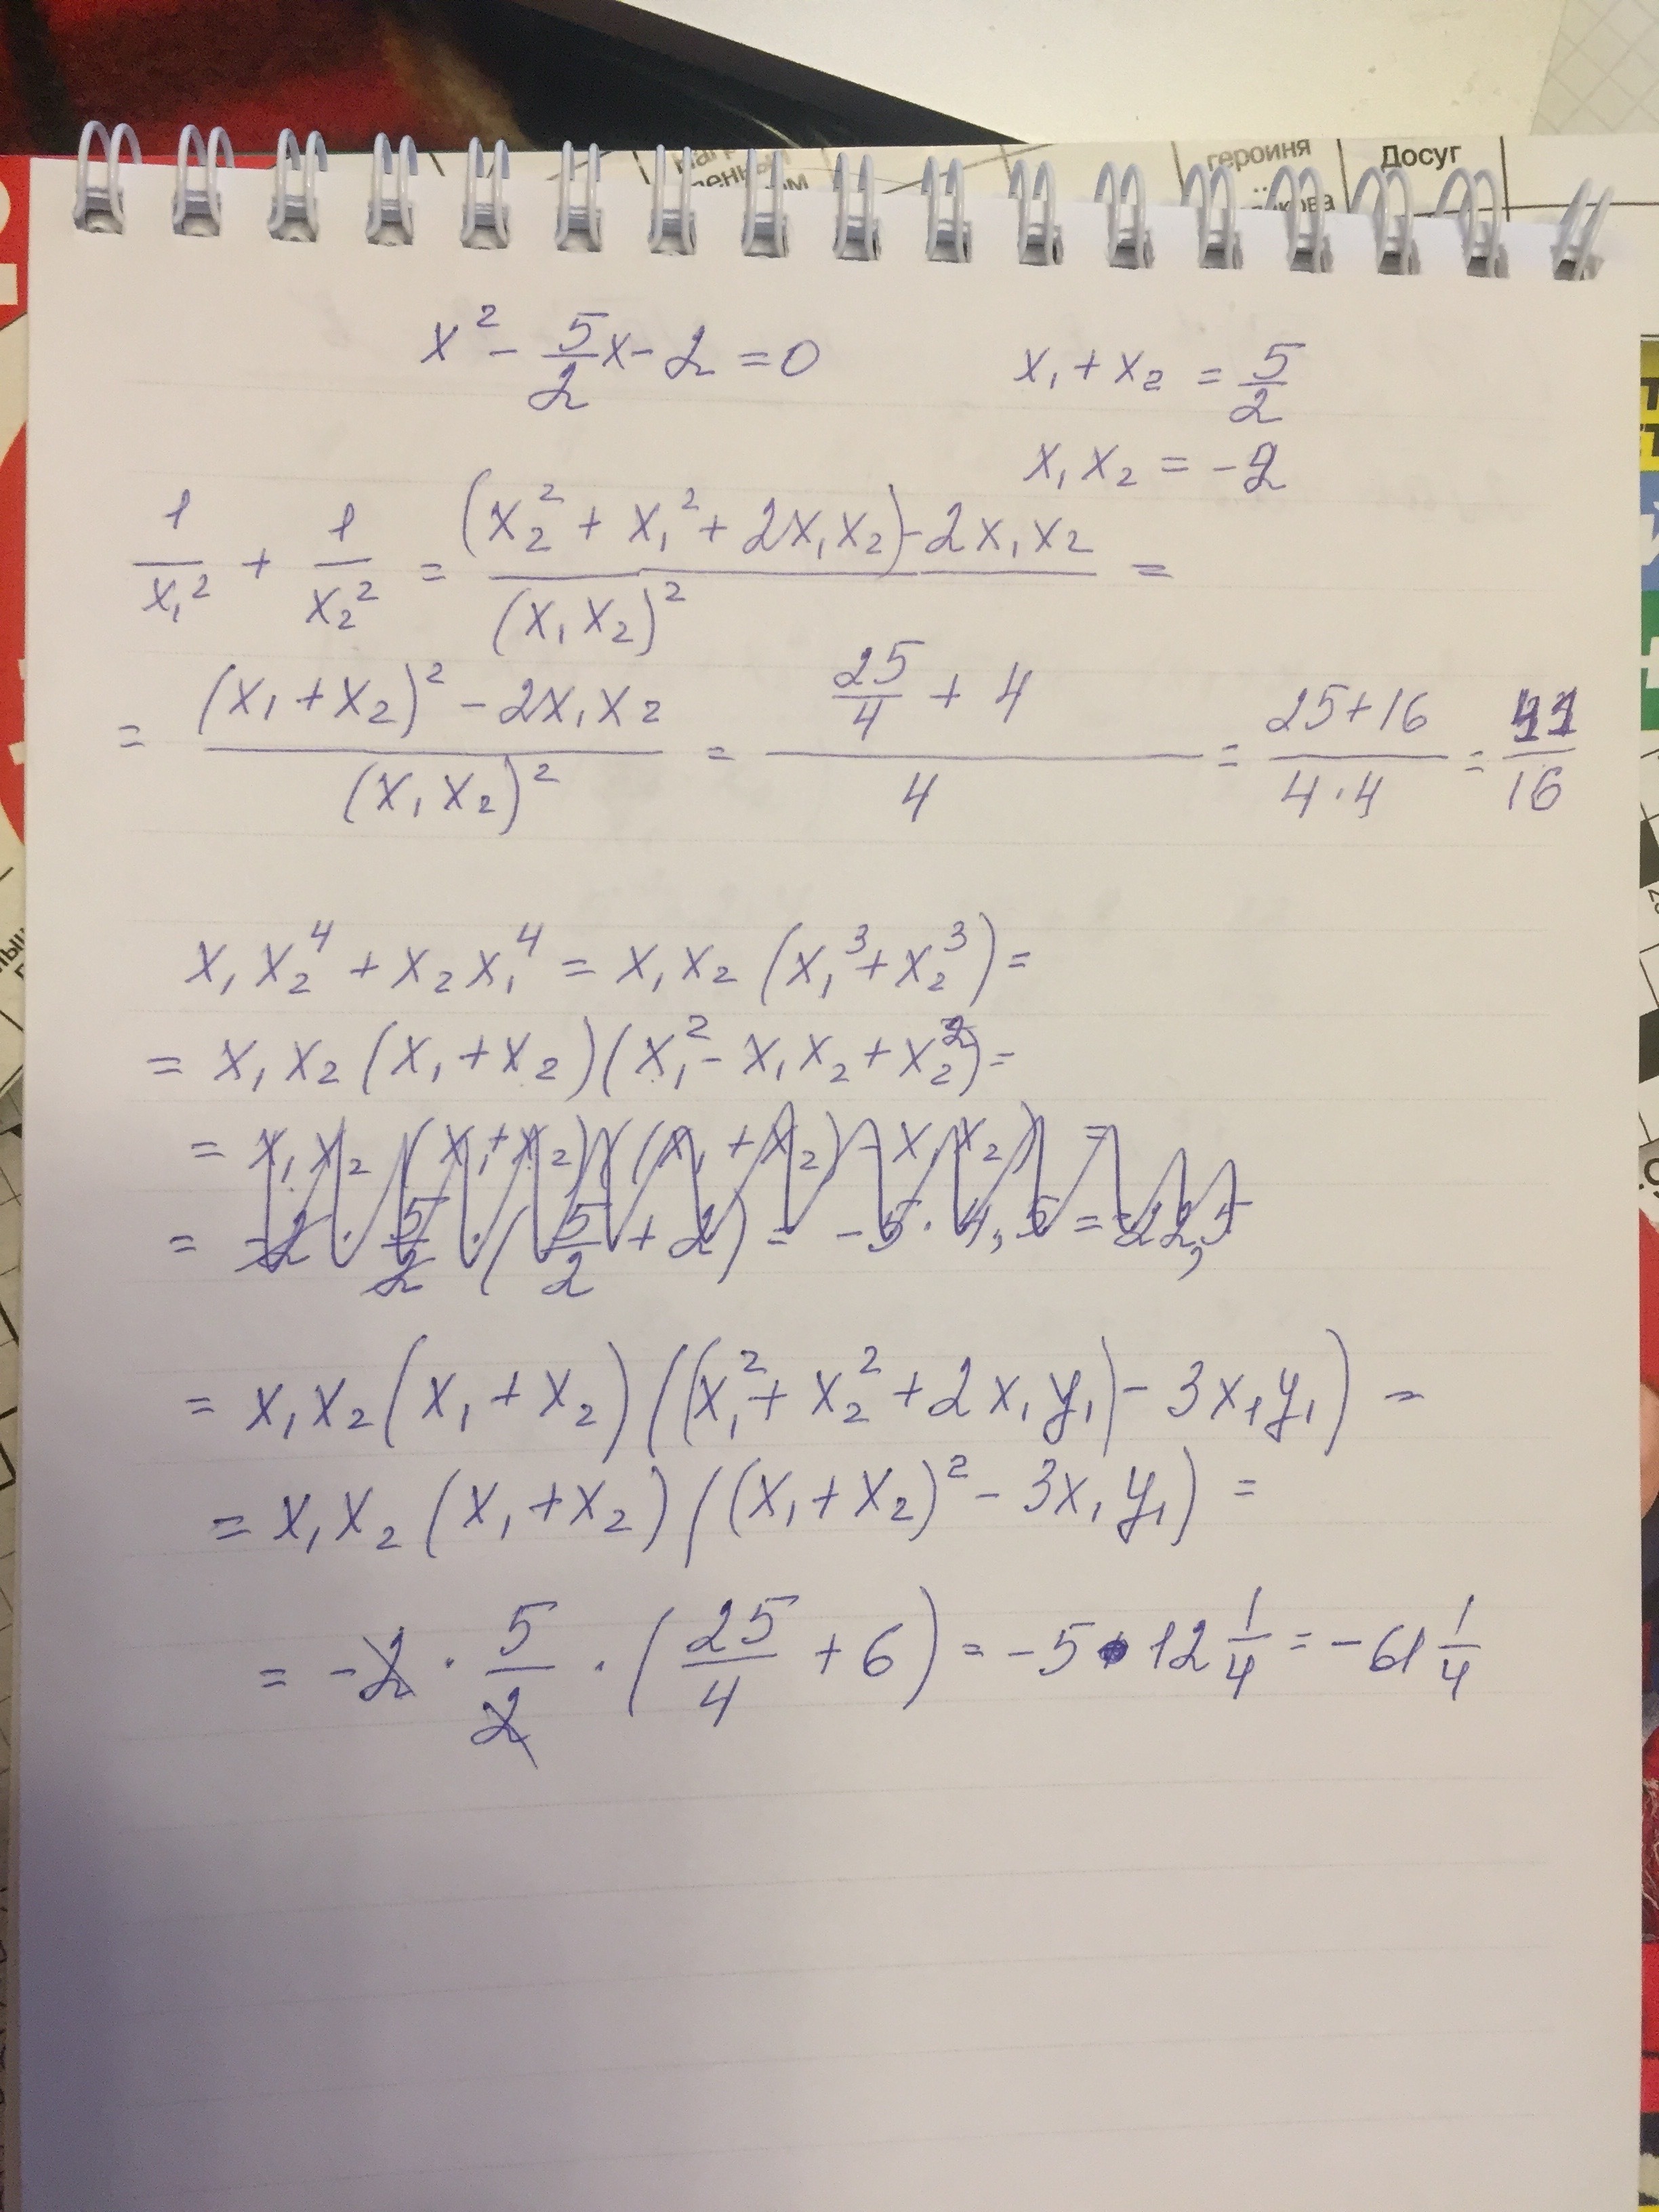 героиня
Досуг
x² - 5/2 x - 2 = 0
x₁ + x₂ = 5/2
x₁x₂ = -2
1/x₁² + 1/x₂² = ((x₂² + x₁² + 2x₁x₂) - 2x₁x₂)/(x₁x₂)² =
= ((x₁ + x₂)² - 2x₁x₂)/(x₁x₂)² = (25/4 + 4)/4 = (25+16)/(4·4) = 41/16
x₁x₂⁴ + x₂x₁⁴ = x₁x₂(x₁³ + x₂³) =
= x₁x₂(x₁ + x₂)(x₁² - x₁x₂ + x₂²) =
= x₁x₂(x₁+x₂)((x₁ + x₂) - x₁x₂) =
= -2 · 5/2 · (5/2 + 2) = -5 · 4,5 = -22,5
= x₁x₂(x₁ + x₂)((x₁² + x₂² + 2x₁y₁) - 3x₁y₁) =
= x₁x₂(x₁ + x₂)((x₁ + x₂)² - 3x₁y₁) =
= -2 · 5/2 · (25/4 + 6) = -5 · 12 1/4 = -61 1/4